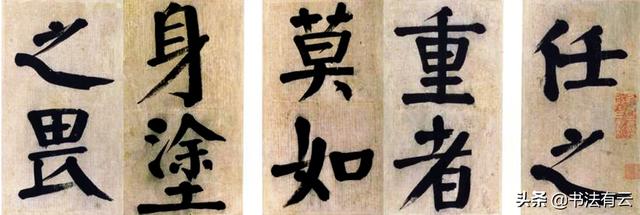 任之
重者
莫如
身塗
之畏
头条 @书法有云